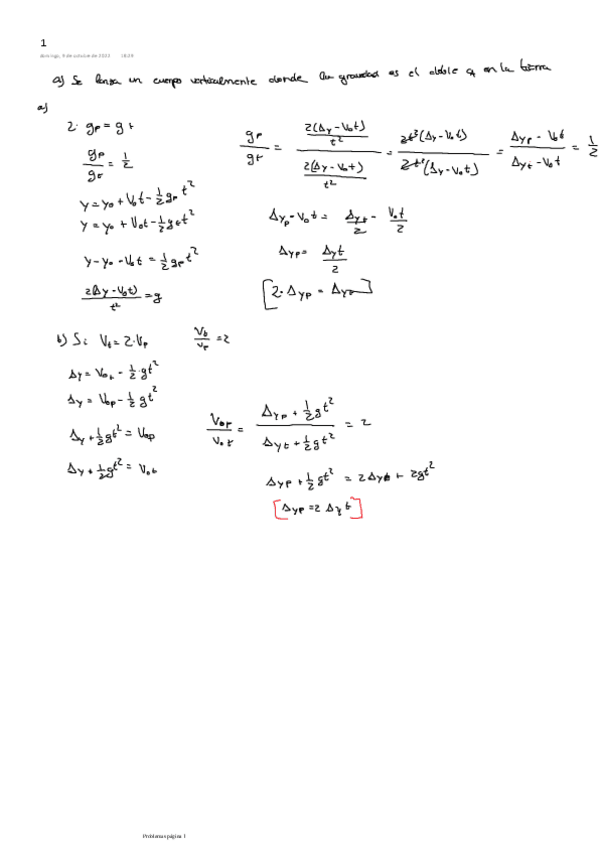 1
domingo, 9 de octubre de 2022 18:29
a) Se lanza un cuerpo verticalmente donde la gravedad es el doble q en la tierra
a)
2· gp = gt
gp/gt = 1/2
y = y₀ + V₀t - 1/2 gp t²
y = y₀ + V₀t - 1/2 gt t²
y - y₀ - V₀t = 1/2 gp t²
2(Δy - V₀t)/t² = g
gp/gt = (2(Δy - V₀t)/t²)/(2(Δy - V₀t)/t²) = 2t²(Δy - V₀t)/2t²(Δy - V₀t) = (Δyp - V₀t)/(Δyt - V₀t) = 1/2
Δyp - V₀t = Δyt/2 - V₀t/2
Δyp = Δyt/2
[2· Δyp = Δyt]
b) Si Vt = 2·Vp Vt/Vp = 2
Δy = V₀t - 1/2·gt²
Δy = V₀p - 1/2 gt²
Δy + 1/2gt² = V₀p
Δy + 1/2gt² = V₀t
V₀p/V₀t = (Δyp + 1/2gt²)/(Δyt + 1/2gt²) = 2
Δyp + 1/2 gt² = 2Δyt + 2gt²
[Δyp = 2 Δyt]
Problemas página 1